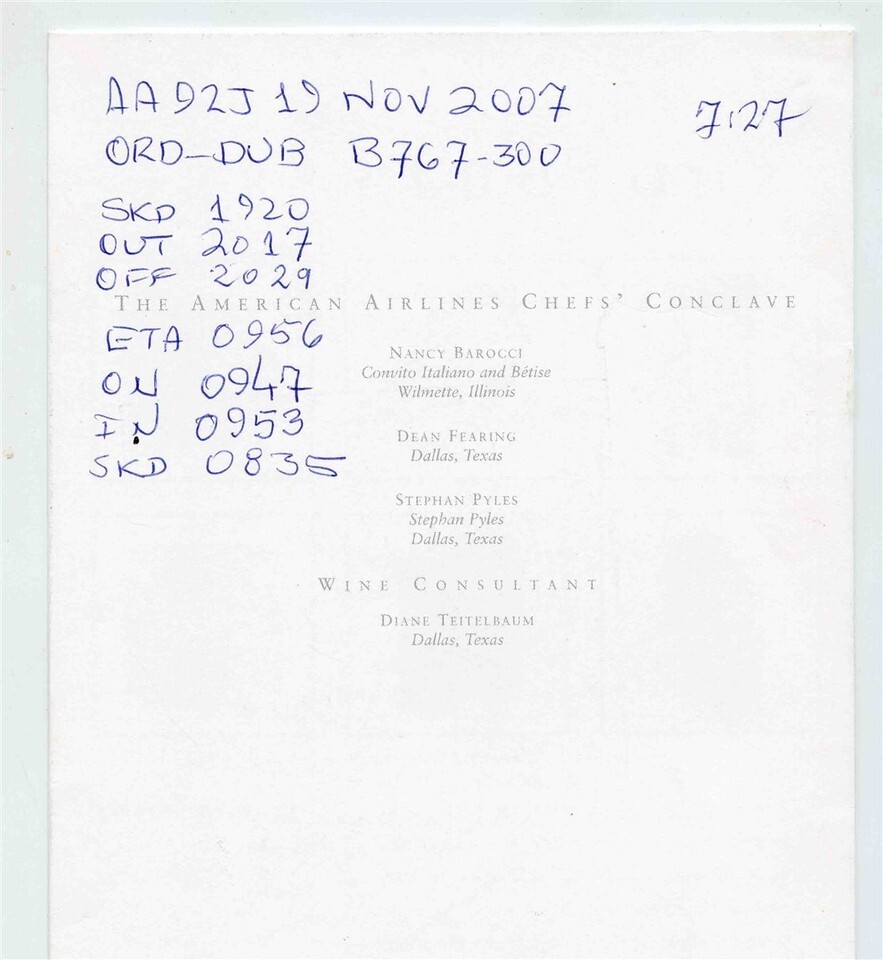 AA92J 19 NOV 2007
7:27
ORD–DUB B767-300
SKD 1920
OUT 2017
OFF 2029
THE AMERICAN AIRLINES CHEFS' CONCLAVE
ETA 0956
NANCY BAROCCI
Convito Italiano and Bétise
ON 0947
Wilmette, Illinois
IN 0953
DEAN FEARING
Dallas, Texas
SKD 0835
STEPHAN PYLES
Stephan Pyles
Dallas, Texas
WINE CONSULTANT
DIANE TEITELBAUM
Dallas, Texas